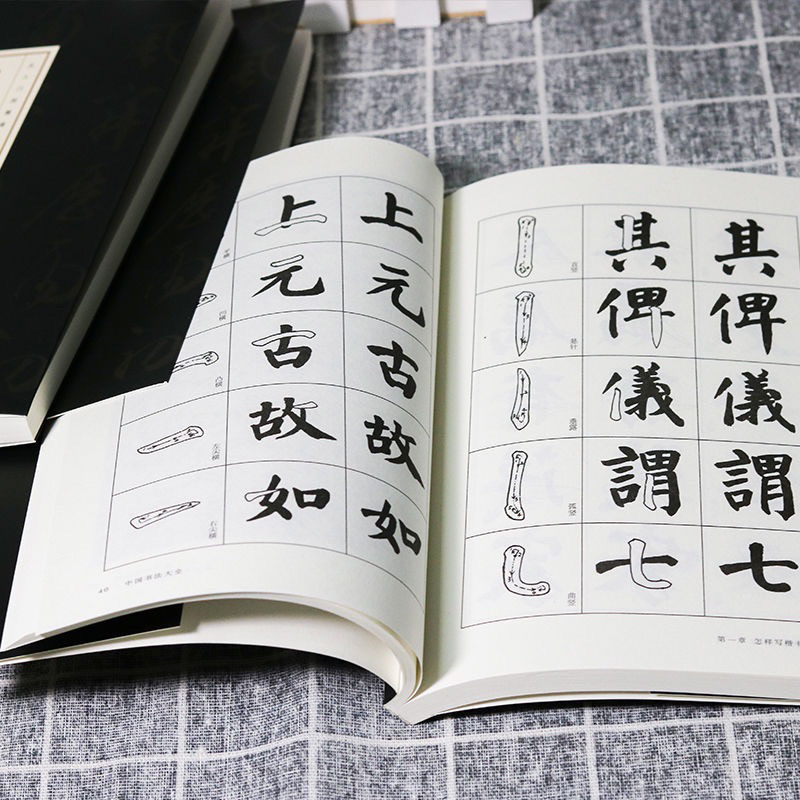 上 上
元 元
凹横 古 古
凸横 故 故
左尖横 如 如
右尖横
40 中国书法大全
直竖 其 其
悬针 俾 俾
垂露 儀 儀
弧竖 謂 謂
曲竖 七 七
第一章 怎样写楷